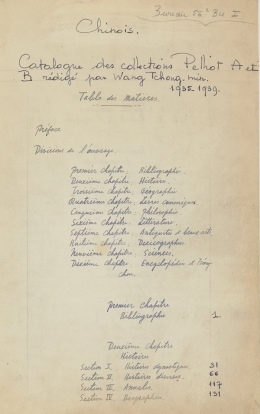 Bureau 56
Chinois.
Catalogue des collections Pelliot A et
B rédigé par Wang Tchong-min.
1935-1939.
Table des Matières
Préface
Divisions de l'ouvrage
Premier chapitre, Bibliographie.
Deuxième chapitre, Histoire.
Troisième chapitre, Géographie
Quatrième chapitre, Livres canoniques
Cinquième chapitre, Philosophie
Sixième chapitre, Littérature
Septième chapitre, Antiquités et beaux-arts
Huitième chapitre, Lexicographie.
Neuvième chapitre, Sciences.
Dixième chapitre, Encyclopédies et
Premier chapitre
Bibliographie 1
Deuxième chapitre
Histoire
Section I. Histoire dynastique 31
Section II. Histoires diverses. 66
Section III. Annales 117
Section IV. Biographies 131